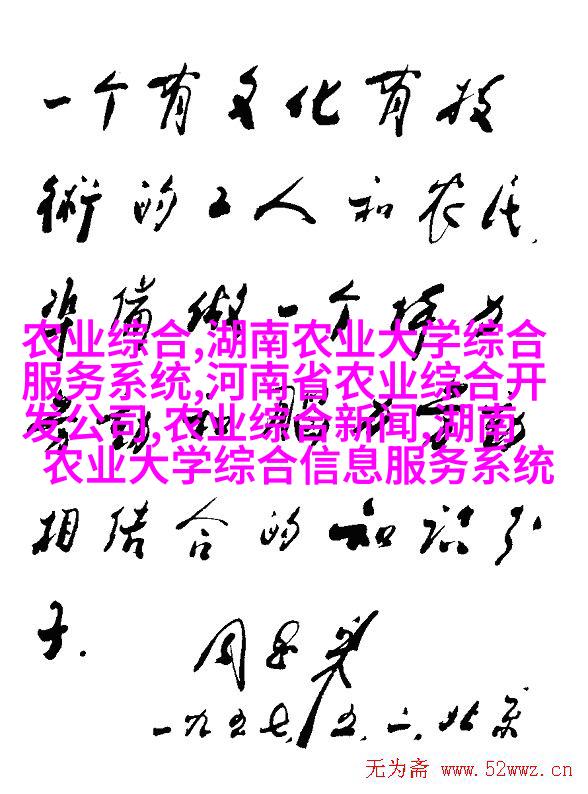 一个有文化有技
術的工人和农民,
準備做一个体力
农业综合,湖南农业大学综合
服务系统,河南省农业综合开
发公司,农业综合新闻,湖南
农业大学综合信息服务系统
劳动和脑力劳动
相结合的知识分
子.
周恩来
一九五七,五.一.北京
无为斋 www.52wwz.cn